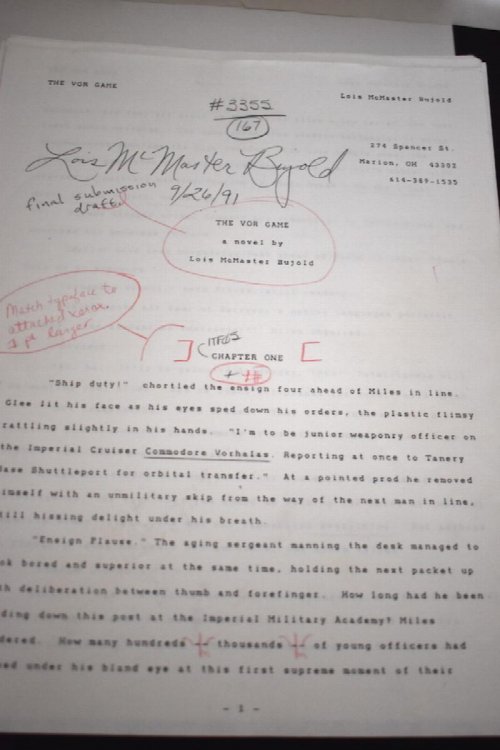 THE VOR GAME
Lois McMaster Bujold
#3355
167
274 Spencer St.
Marion, OH 43302
614-389-1535
Lois McMaster Bujold
final submission draft.
9/26/91
THE VOR GAME
a novel by
Lois McMaster Bujold
Match typeface to
attached xerox.
larger
CHAPTER ONE
"Ship duty!" chortled the ensign four ahead of Miles in line.
Glee lit his face as his eyes sped down his orders, the plastic flimsy
rattling slightly in his hands. "I'm to be junior weaponry officer on
the Imperial Cruiser Commodore Vorhalas. Reporting at once to Tanery
Base Shuttleport for orbital transfer." At a pointed prod he removed
imself with an unmilitary skip from the way of the next man in line,
till hissing delight under his breath.
"Ensign Plause." The aging sergeant manning the desk managed to
ok bored and superior at the same time, holding the next packet up
th deliberation between thumb and forefinger. How long had he been
ding down this post at the Imperial Military Academy? Miles
dered. How many hundreds -- thousands -- of young officers had
ed under his bland eye at this first supreme moment of their
- 1 -